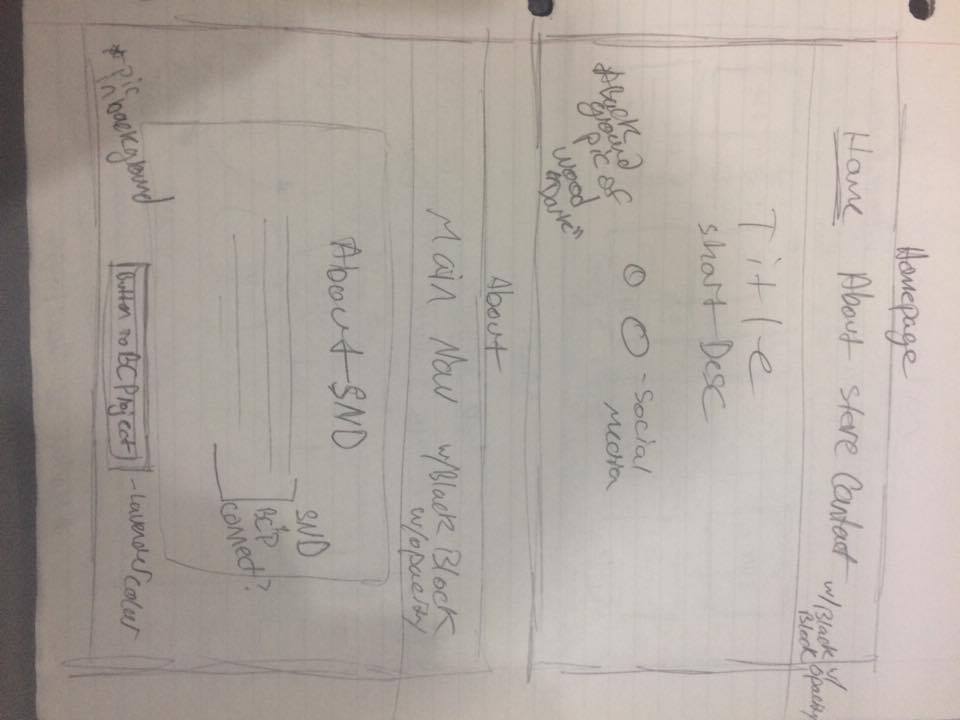 Homepage
Home About store Contact w/Black w/
Block opacity
Title
short Desc
- Social
media
*Back
ground
pic of
wood
"Dark"
About
Main Nav w/Black Block
w/opacity
About SND
SND
BCP
connect?
*pic
in background
Button to BC Project - lavender color